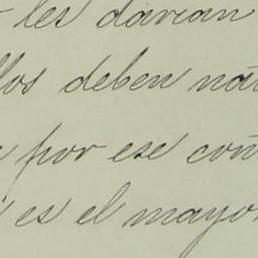 les davian
llos deben na
por ese con
es el mayor